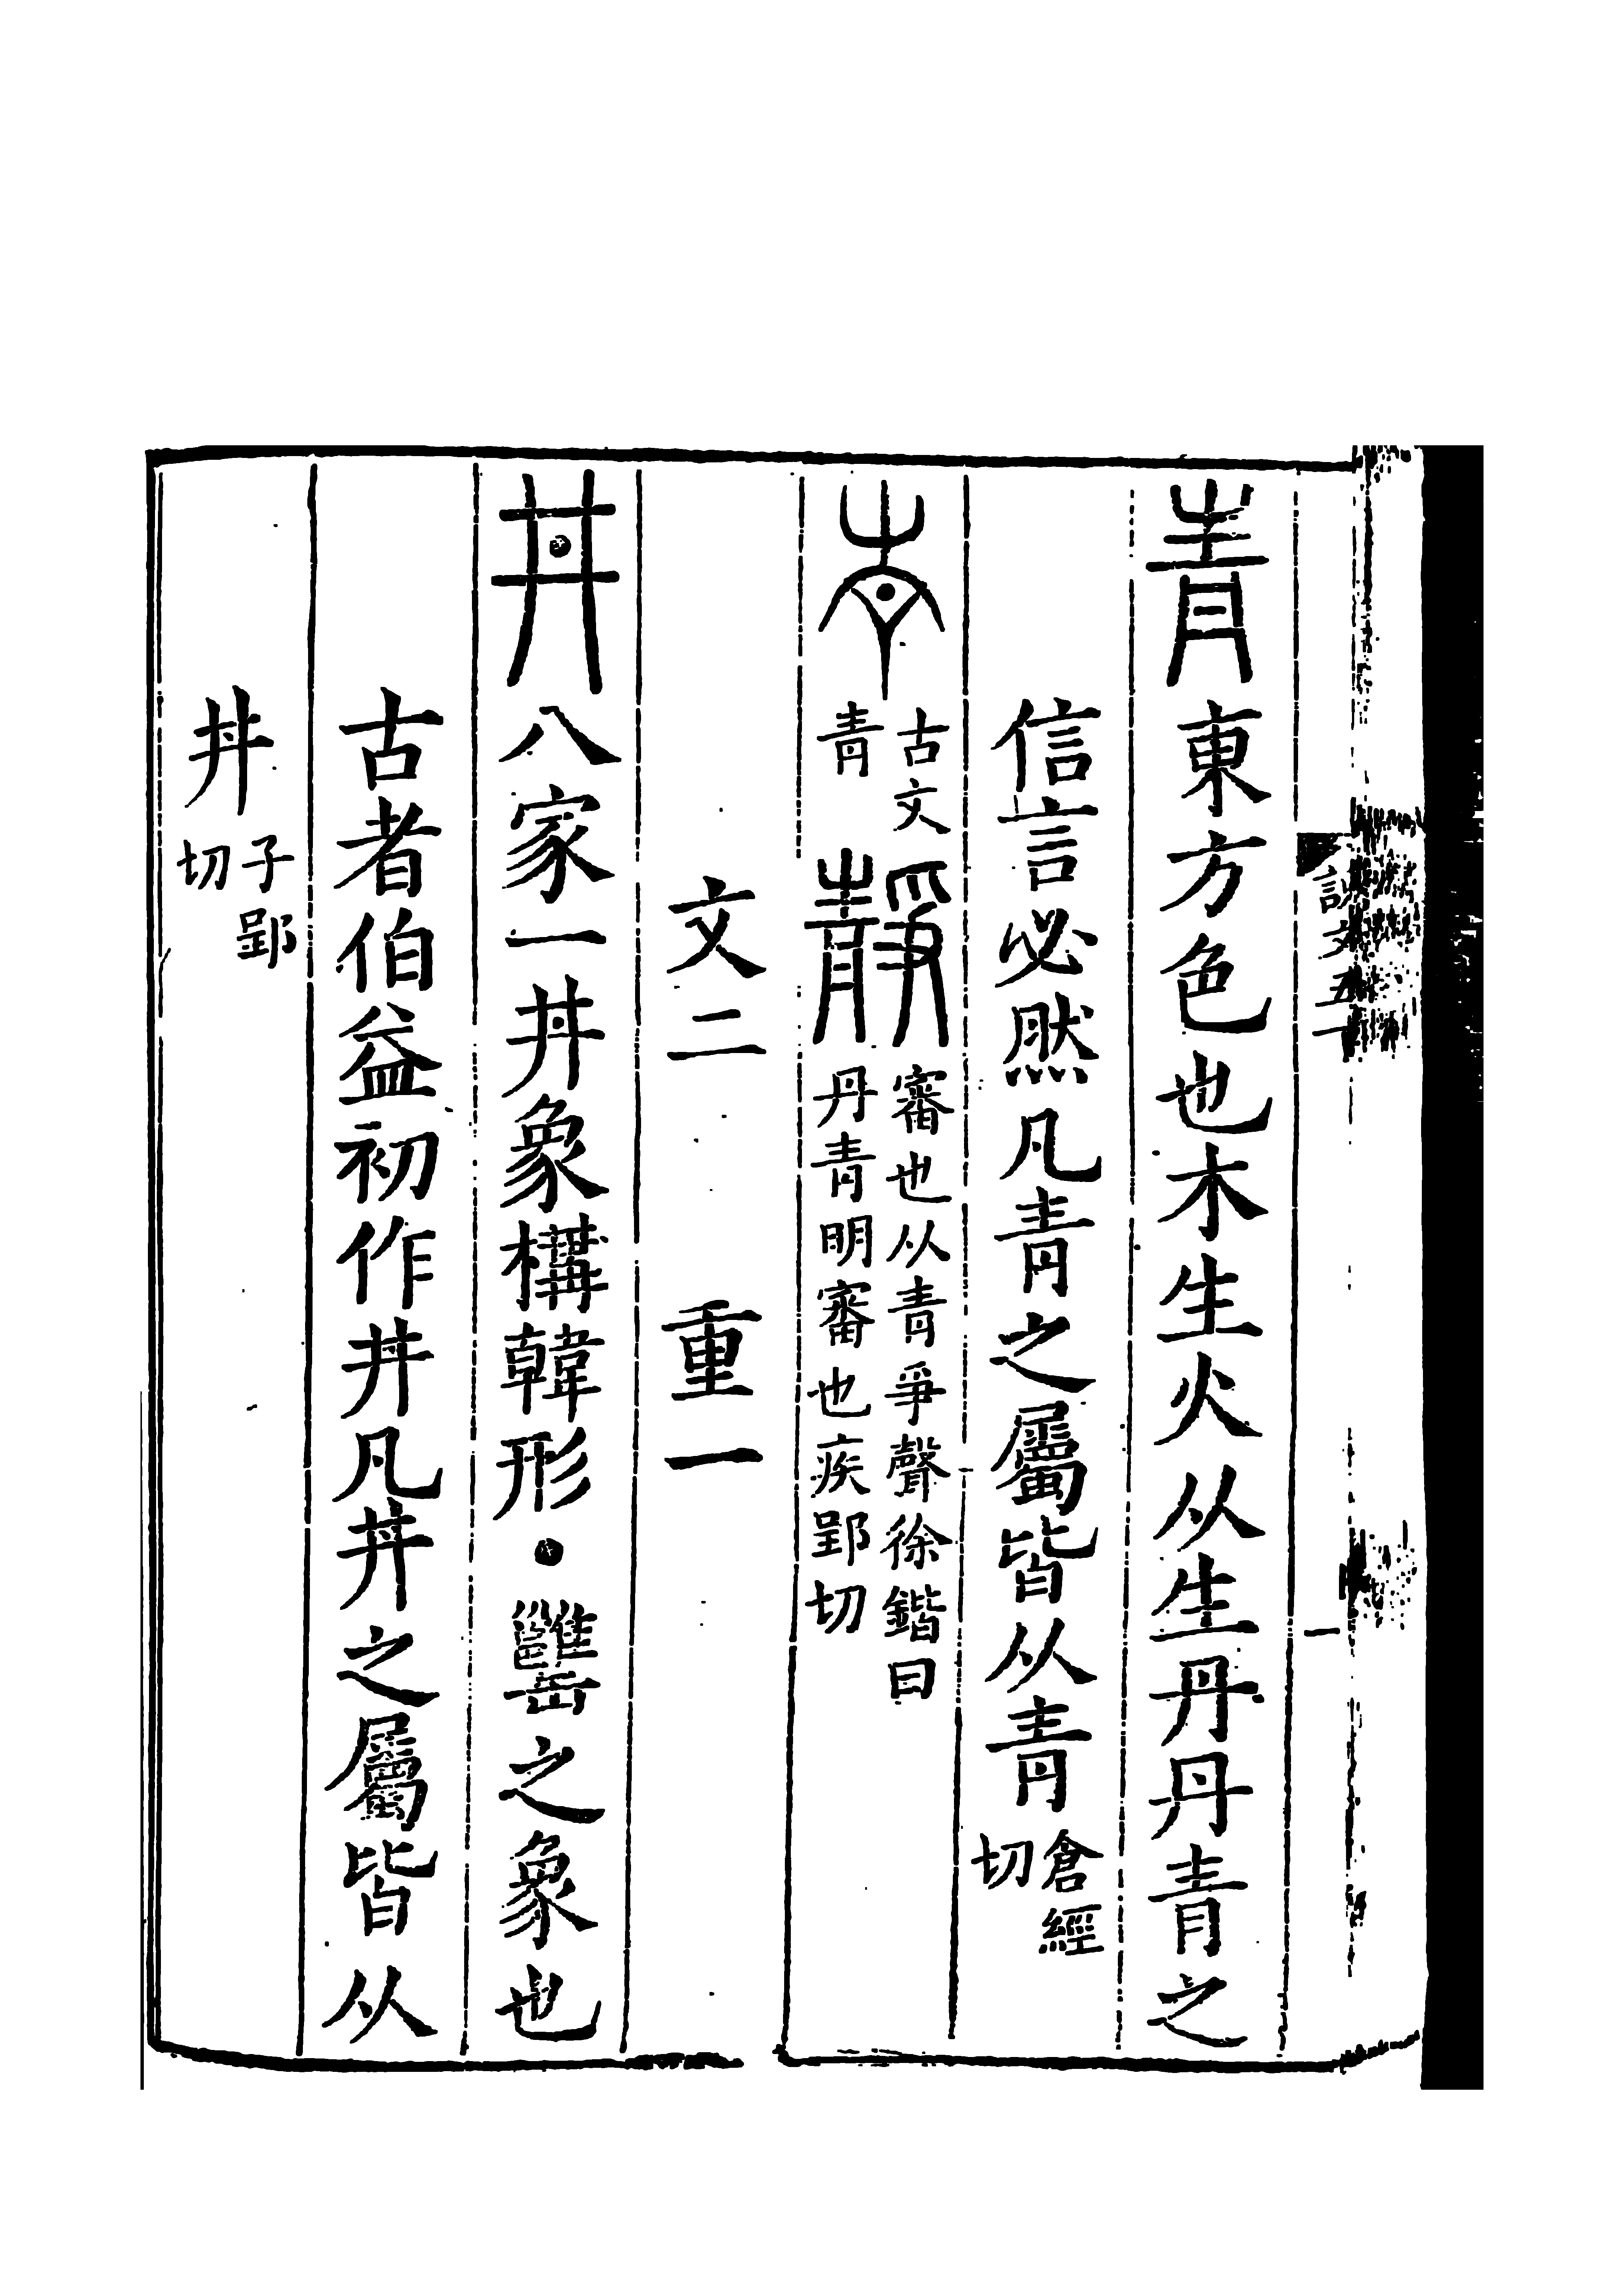 說文五下
一
靑東方色也木生火从生丹丹靑之
信言必然凡靑之屬皆从靑倉經切
𡴑古文靑靜審也从靑爭聲徐鍇曰丹靑明審也疾郢切
文二 重一
丼八家一丼象構韓形·𦉥之象也
古者伯益初作丼凡丼之屬皆从
丼子郢切